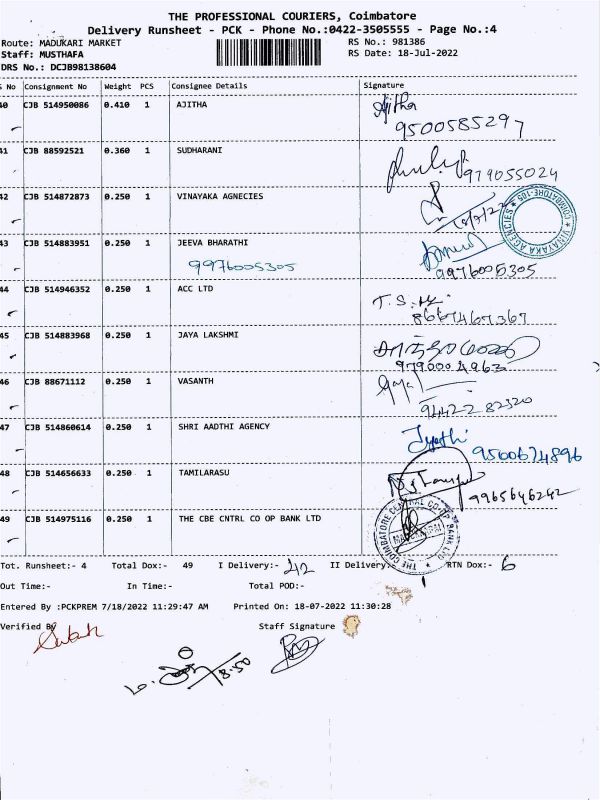 THE PROFESSIONAL COURIERS, Coimbatore
Delivery Runsheet - PCK - Phone No.:0422-3505555 - Page No.:4
Route: MADUKARI MARKET RS No.: 981386
Staff: MUSTHAFA RS Date: 18-Jul-2022
DRS No.: DCJB98138604
S No Consignment No Weight PCS Consignee Details Signature
40 CJB 514950086 0.410 1 AJITHA Ajitha
9500585297
41 CJB 88592521 0.360 1 SUDHARANI
979055024
42 CJB 514872873 0.250 1 VINAYAKA AGNECIES
VINAYAKA AGENCIES * COIMBATORE-105 *
43 CJB 514883951 0.250 1 JEEVA BHARATHI
9976005305 9976005305
44 CJB 514946352 0.250 1 ACC LTD T.S.
8667467367
45 CJB 514883968 0.250 1 JAYA LAKSHMI
9790004963
46 CJB 88671112 0.250 1 VASANTH
94422 82320
47 CJB 514860614 0.250 1 SHRI AADTHI AGENCY Jyothi
9500674896
48 CJB 514656633 0.250 1 TAMILARASU
9965646242
49 CJB 514975116 0.250 1 THE CBE CNTRL CO OP BANK LTD
THE COIMBATORE CENTRAL CO-OP BANK LTD
Tot. Runsheet:- 4 Total Dox:- 49 I Delivery:- 42 II Delivery: RTN Dox:- 6
Out Time:- In Time:- Total POD:-
Entered By :PCKPREM 7/18/2022 11:29:47 AM Printed On: 18-07-2022 11:30:28
Verified By Staff Signature
8.50